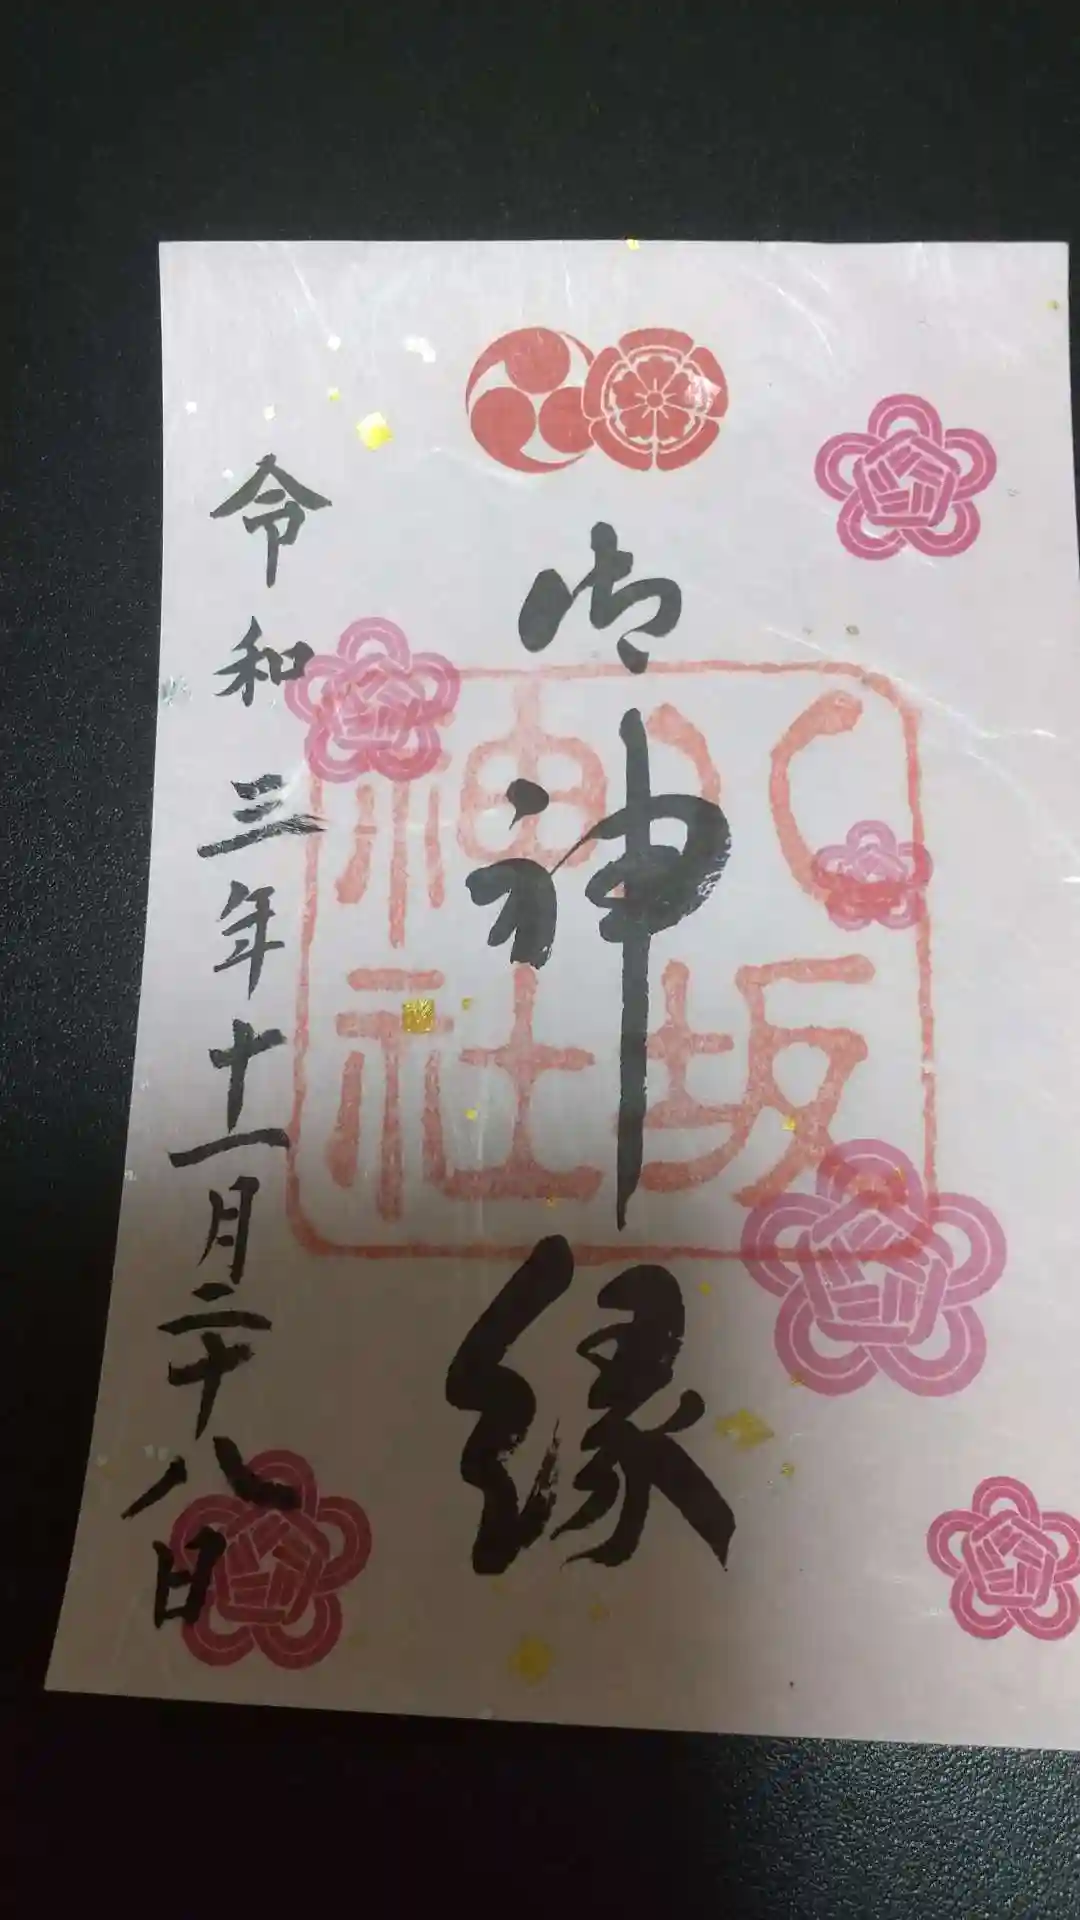 御神縁
八坂
神社
令和三年十一月二十八日